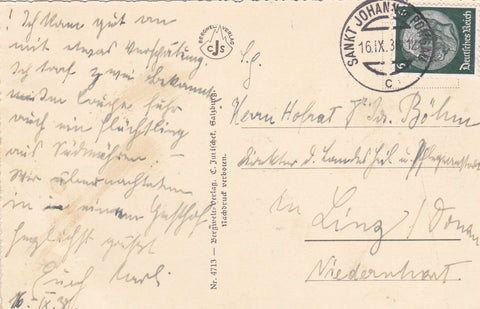 ! Kam gut an
mit etwas Verspätung.
Ich traf zwei Bekannte
auch ein Flüchtling
aus Südmähren.
Wir übernachteten
in einem Gasthof.
herzlichst grüßt
Euch Karl.
16. IX. 38
BERGWELT VERLAG
CJS
Nr. 4713 – Bergwelt-Verlag, C. Jurischek, Salzburg.
Nachdruck verboten.
SANKT JOHANN
16.IX.3
c
Deutsches Reich
S. g.
Herrn Hofrat Dr. Böhm
Direktor d. Landes Heil u. Pflegeanstalt
in Linz / Donau
Niedernhart